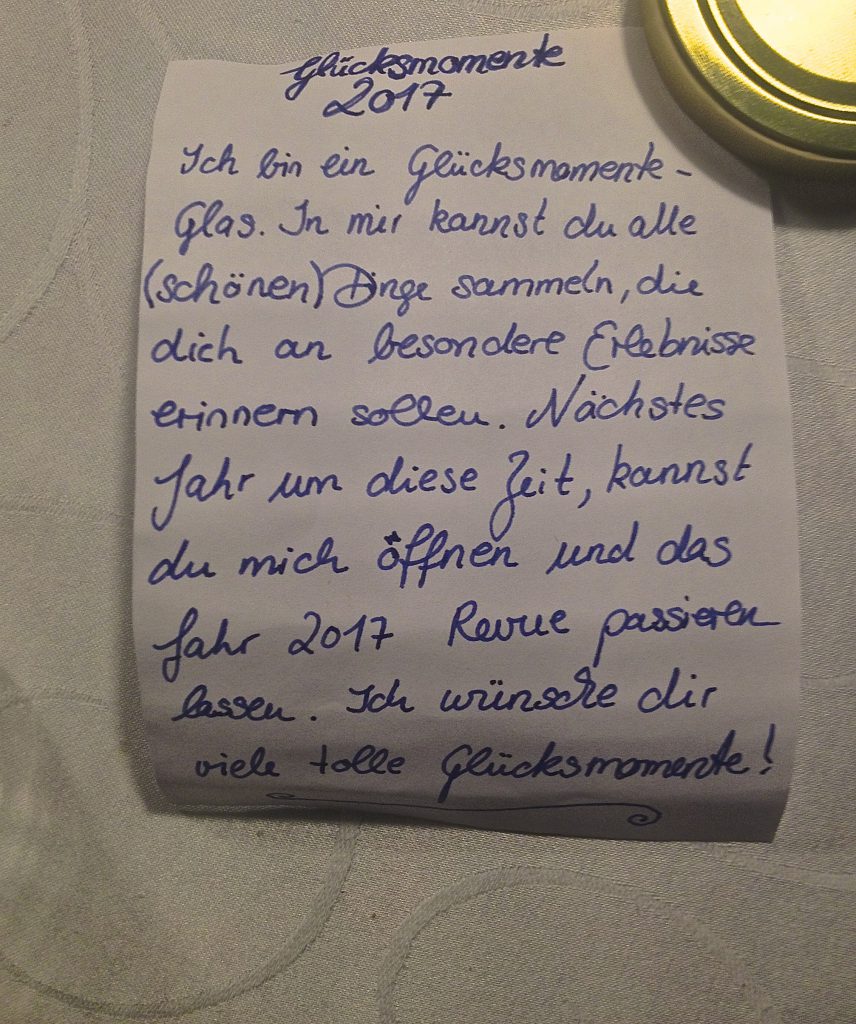 Glücksmomente
2017
Ich bin ein Glücksmomente-
Glas. In mir kannst du alle
(schönen) Dinge sammeln, die
dich an besondere Erlebnisse
erinnern sollen. Nächstes
Jahr um diese Zeit, kannst
du mich öffnen und das
Jahr 2017 Revue passieren
lassen. Ich wünsche dir
viele tolle Glücksmomente!